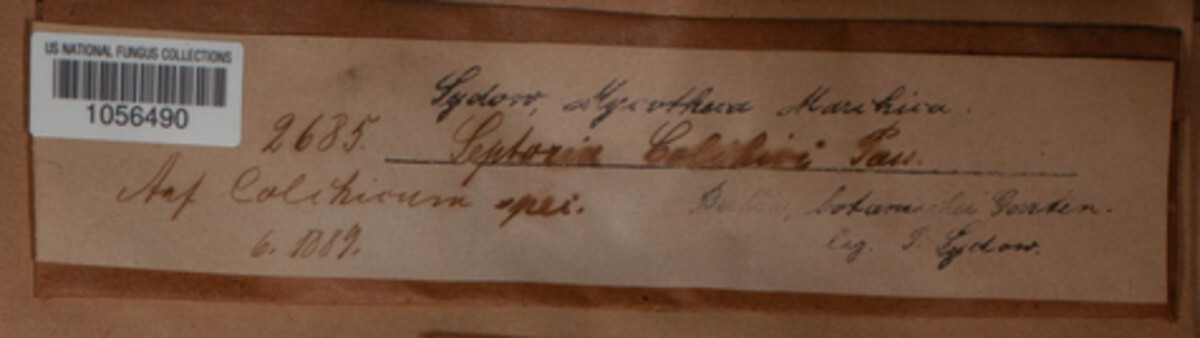 US NATIONAL FUNGUS COLLECTIONS
1056490
Sydow, Mycotheca Marchica.
2685. Septoria Colchici Pass.
Auf Colchicum spei. Berlin, botanischer Garten.
6. 1889. leg. P. Sydow.